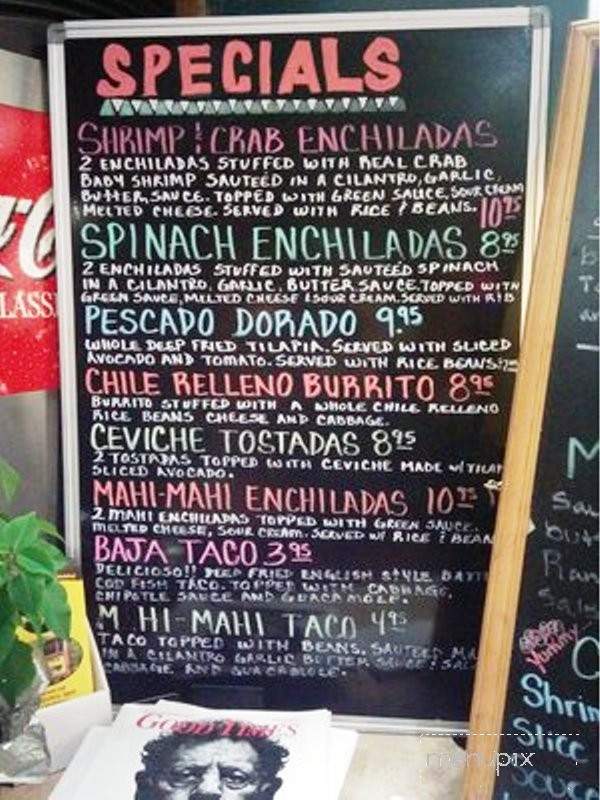 SPECIALS
SHRIMP & CRAB ENCHILADAS
2 ENCHILADAS STUFFED WITH REAL CRAB
BABY SHRIMP SAUTEED IN A CILANTRO, GARLIC,
BUTTER, SAUCE. TOPPED WITH GREEN SAUCE, SOUR CREAM
MELTED CHEESE. SERVED WITH RICE & BEANS. 10.95
SPINACH ENCHILADAS 8.95
2 ENCHILADAS STUFFED WITH SAUTEED SPINACH
IN A CILANTRO, GARLIC, BUTTER SAUCE. TOPPED WITH
GREEN SAUCE, MELTED CHEESE & SOUR CREAM. SERVED WITH R&B
PESCADO DORADO 9.95
WHOLE DEEP FRIED TILAPIA. SERVED WITH SLICED
AVOCADO AND TOMATO. SERVED WITH RICE BEANS &
CHILE RELLENO BURRITO 8.95
BURRITO STUFFED WITH A WHOLE CHILE RELLENO
RICE BEANS CHEESE AND CABBAGE.
CEVICHE TOSTADAS 8.95
2 TOSTADAS TOPPED WITH CEVICHE MADE W/ TILAP
SLICED AVOCADO.
MAHI-MAHI ENCHILADAS 10.95
2 MAHI ENCHILADAS TOPPED WITH GREEN SAUCE.
MELTED CHEESE, SOUR CREAM. SERVED W/ RICE & BEAN
BAJA TACO 3.95
DELICIOSO!! DEEP FRIED ENGLISH STYLE BATT
COD FISH TACO. TOPPED WITH CABBAGE,
CHIPOTLE SAUCE AND GUACAMOLE.
M HI-MAHI TACO 4.95
TACO TOPPED WITH BEANS. SAUTEED MA
IN A CILANTRO GARLIC BUTTER SAUCE & SAL
CABBAGE AND GUACAMOLE.
GOOD TIMES
LASS
Yummy
Shrim
Slice
menupix